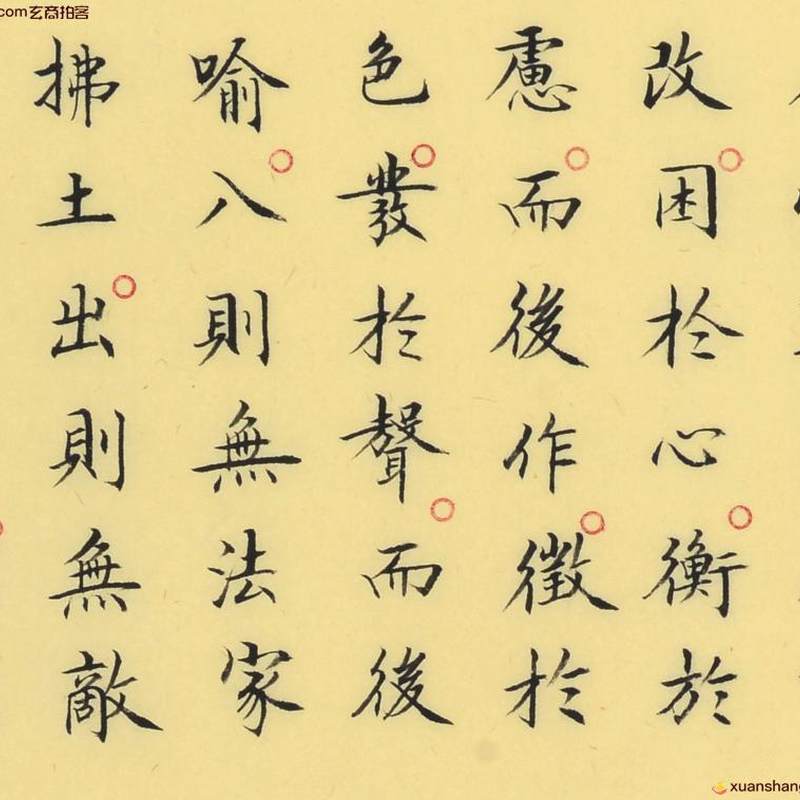 改困於心衡於
慮而後作徵於
色發於聲而後
喻入則無法家
拂土出則無敵
.com玄商拍客
xuanshang